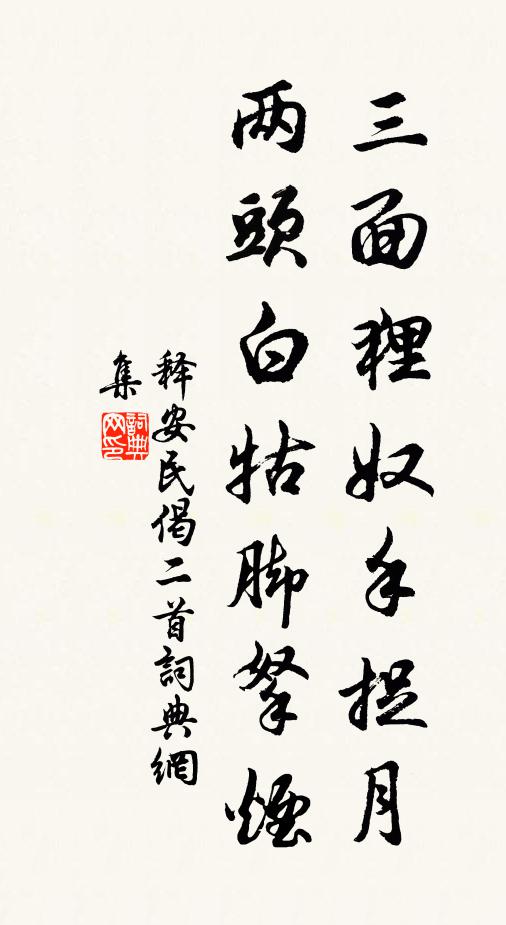 三面狸奴手捉月
两頭白牯脚拏煙
释安民偈二首詞典網
集
詞典
网印